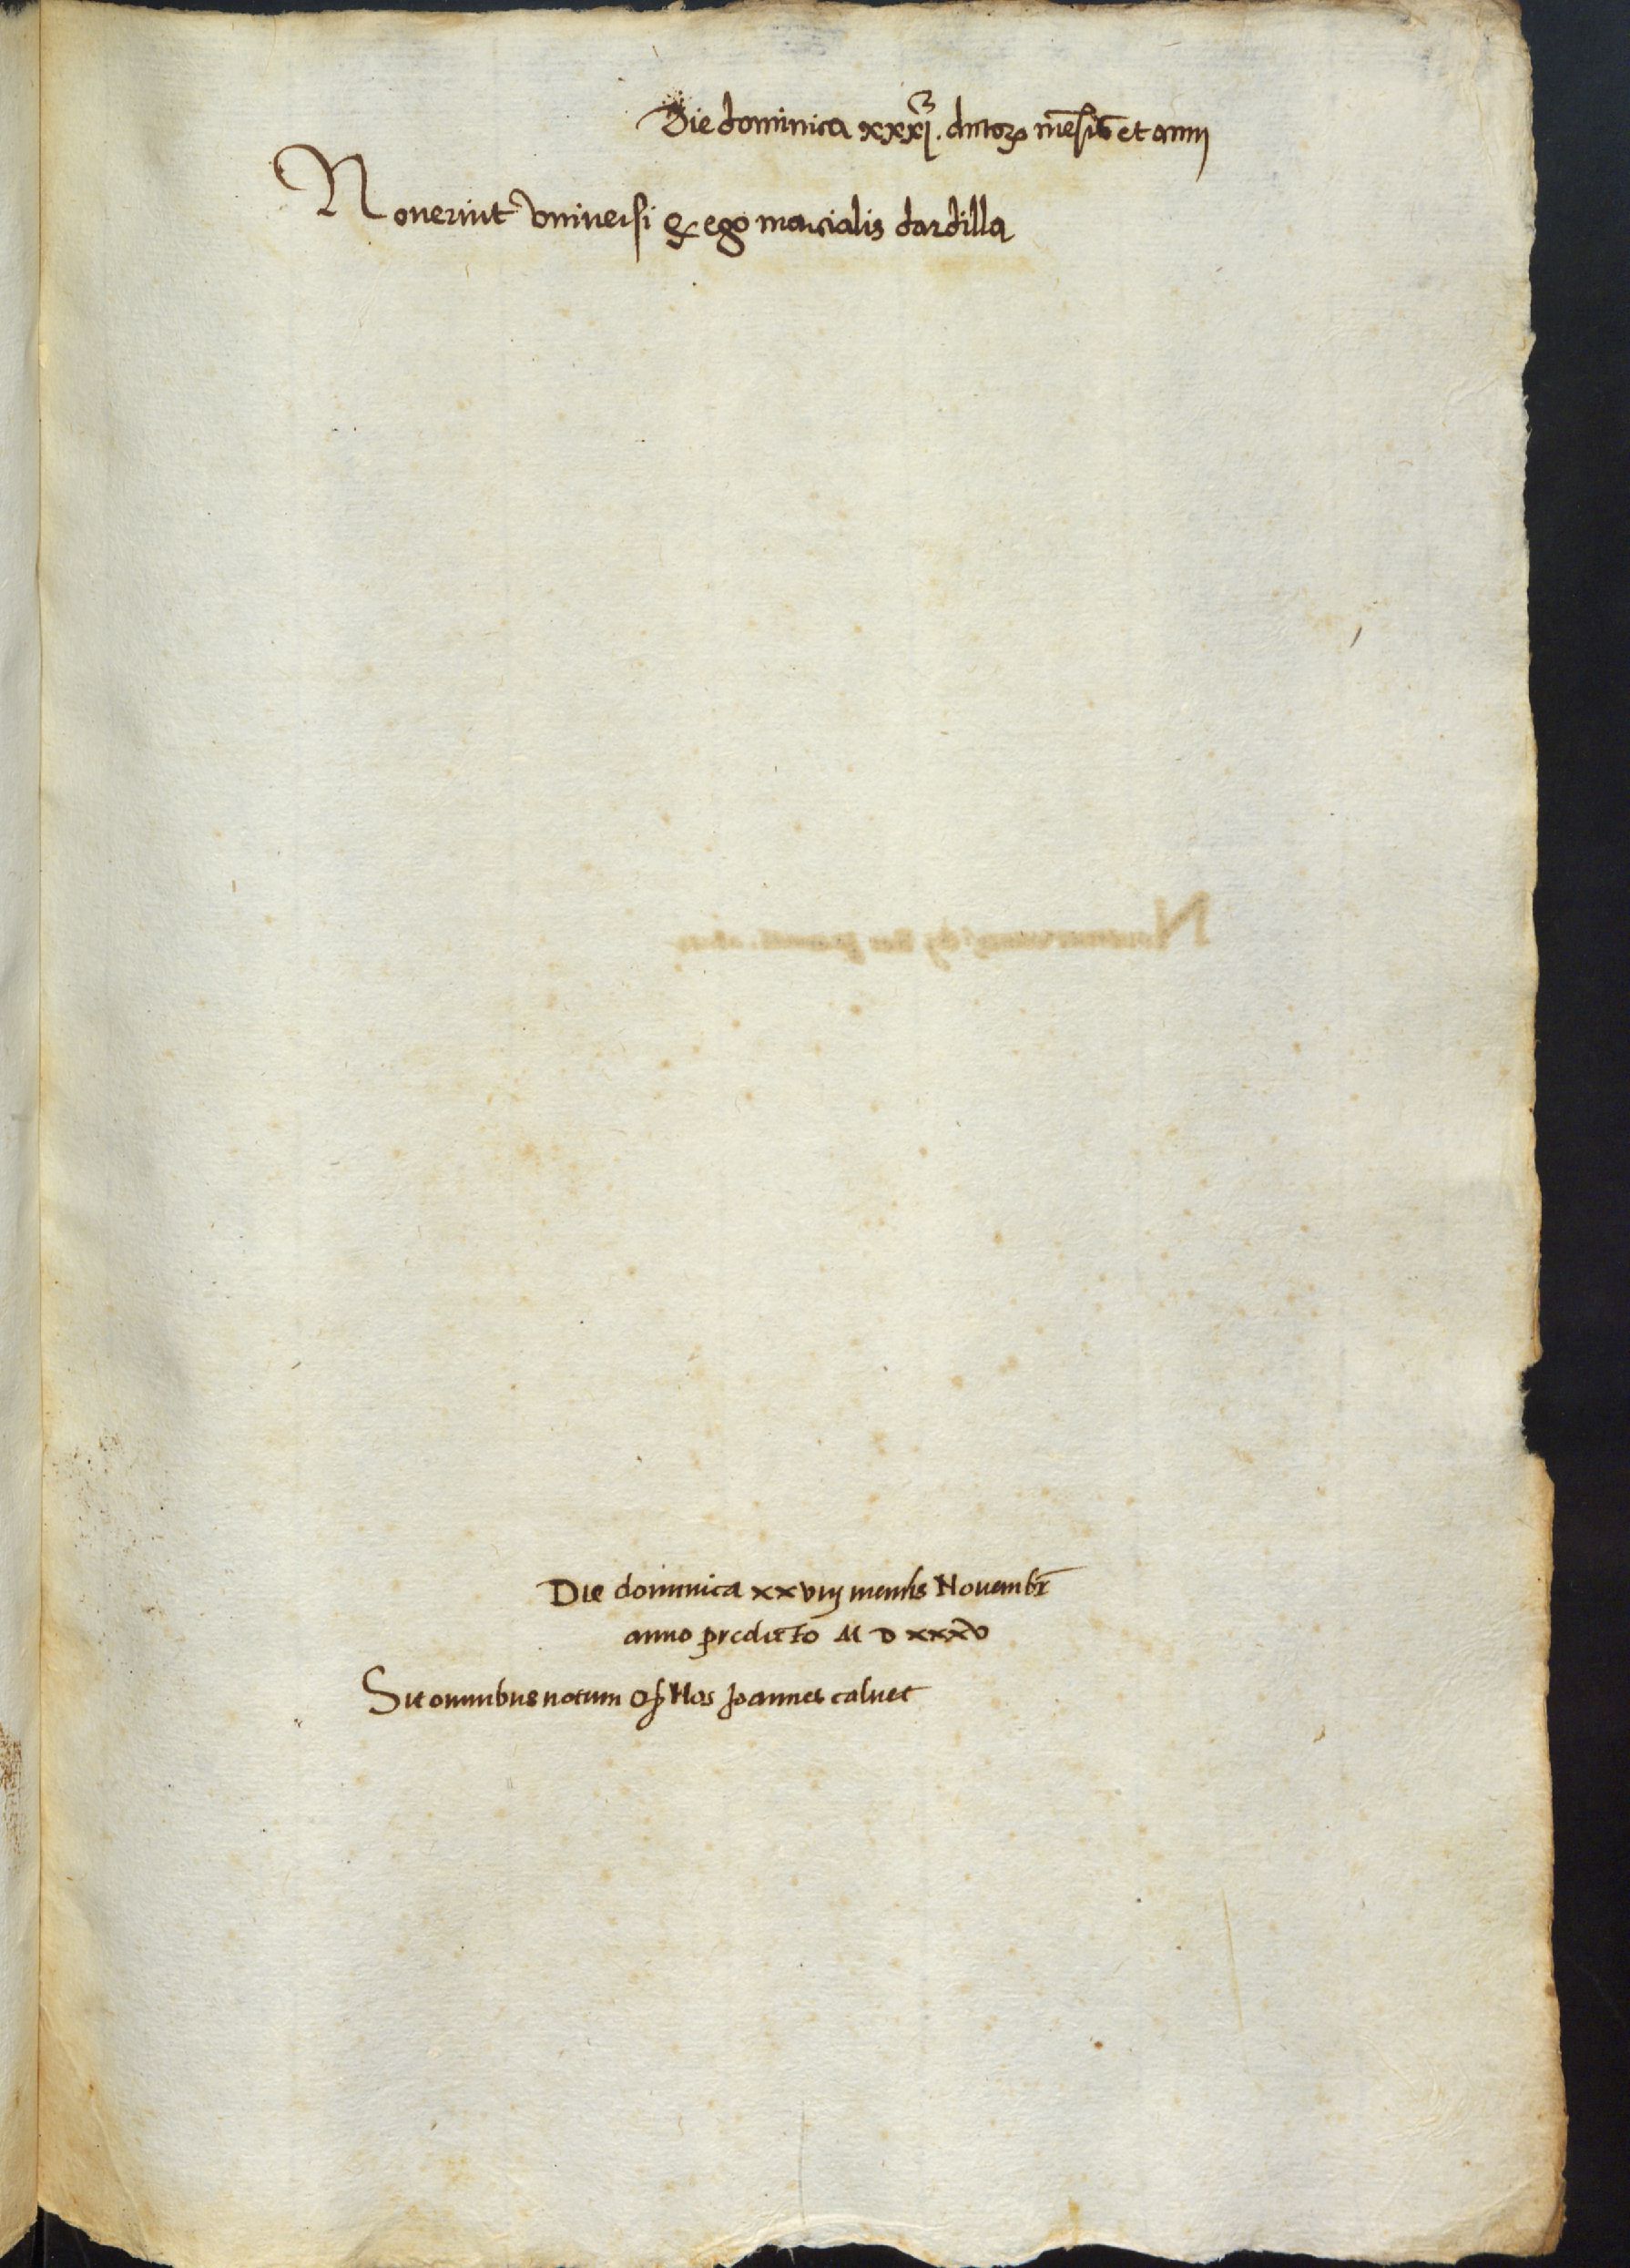 Die dominica xxxj. dictoꝝ mēsis et anni
Noverint vniversi ꝙ ego marcialis dardilla
Die dominica xxviij mensis Novembr̄
anno predicto M D xxxv
Sit omnibus notum ꝙ Nos Joannes calvet